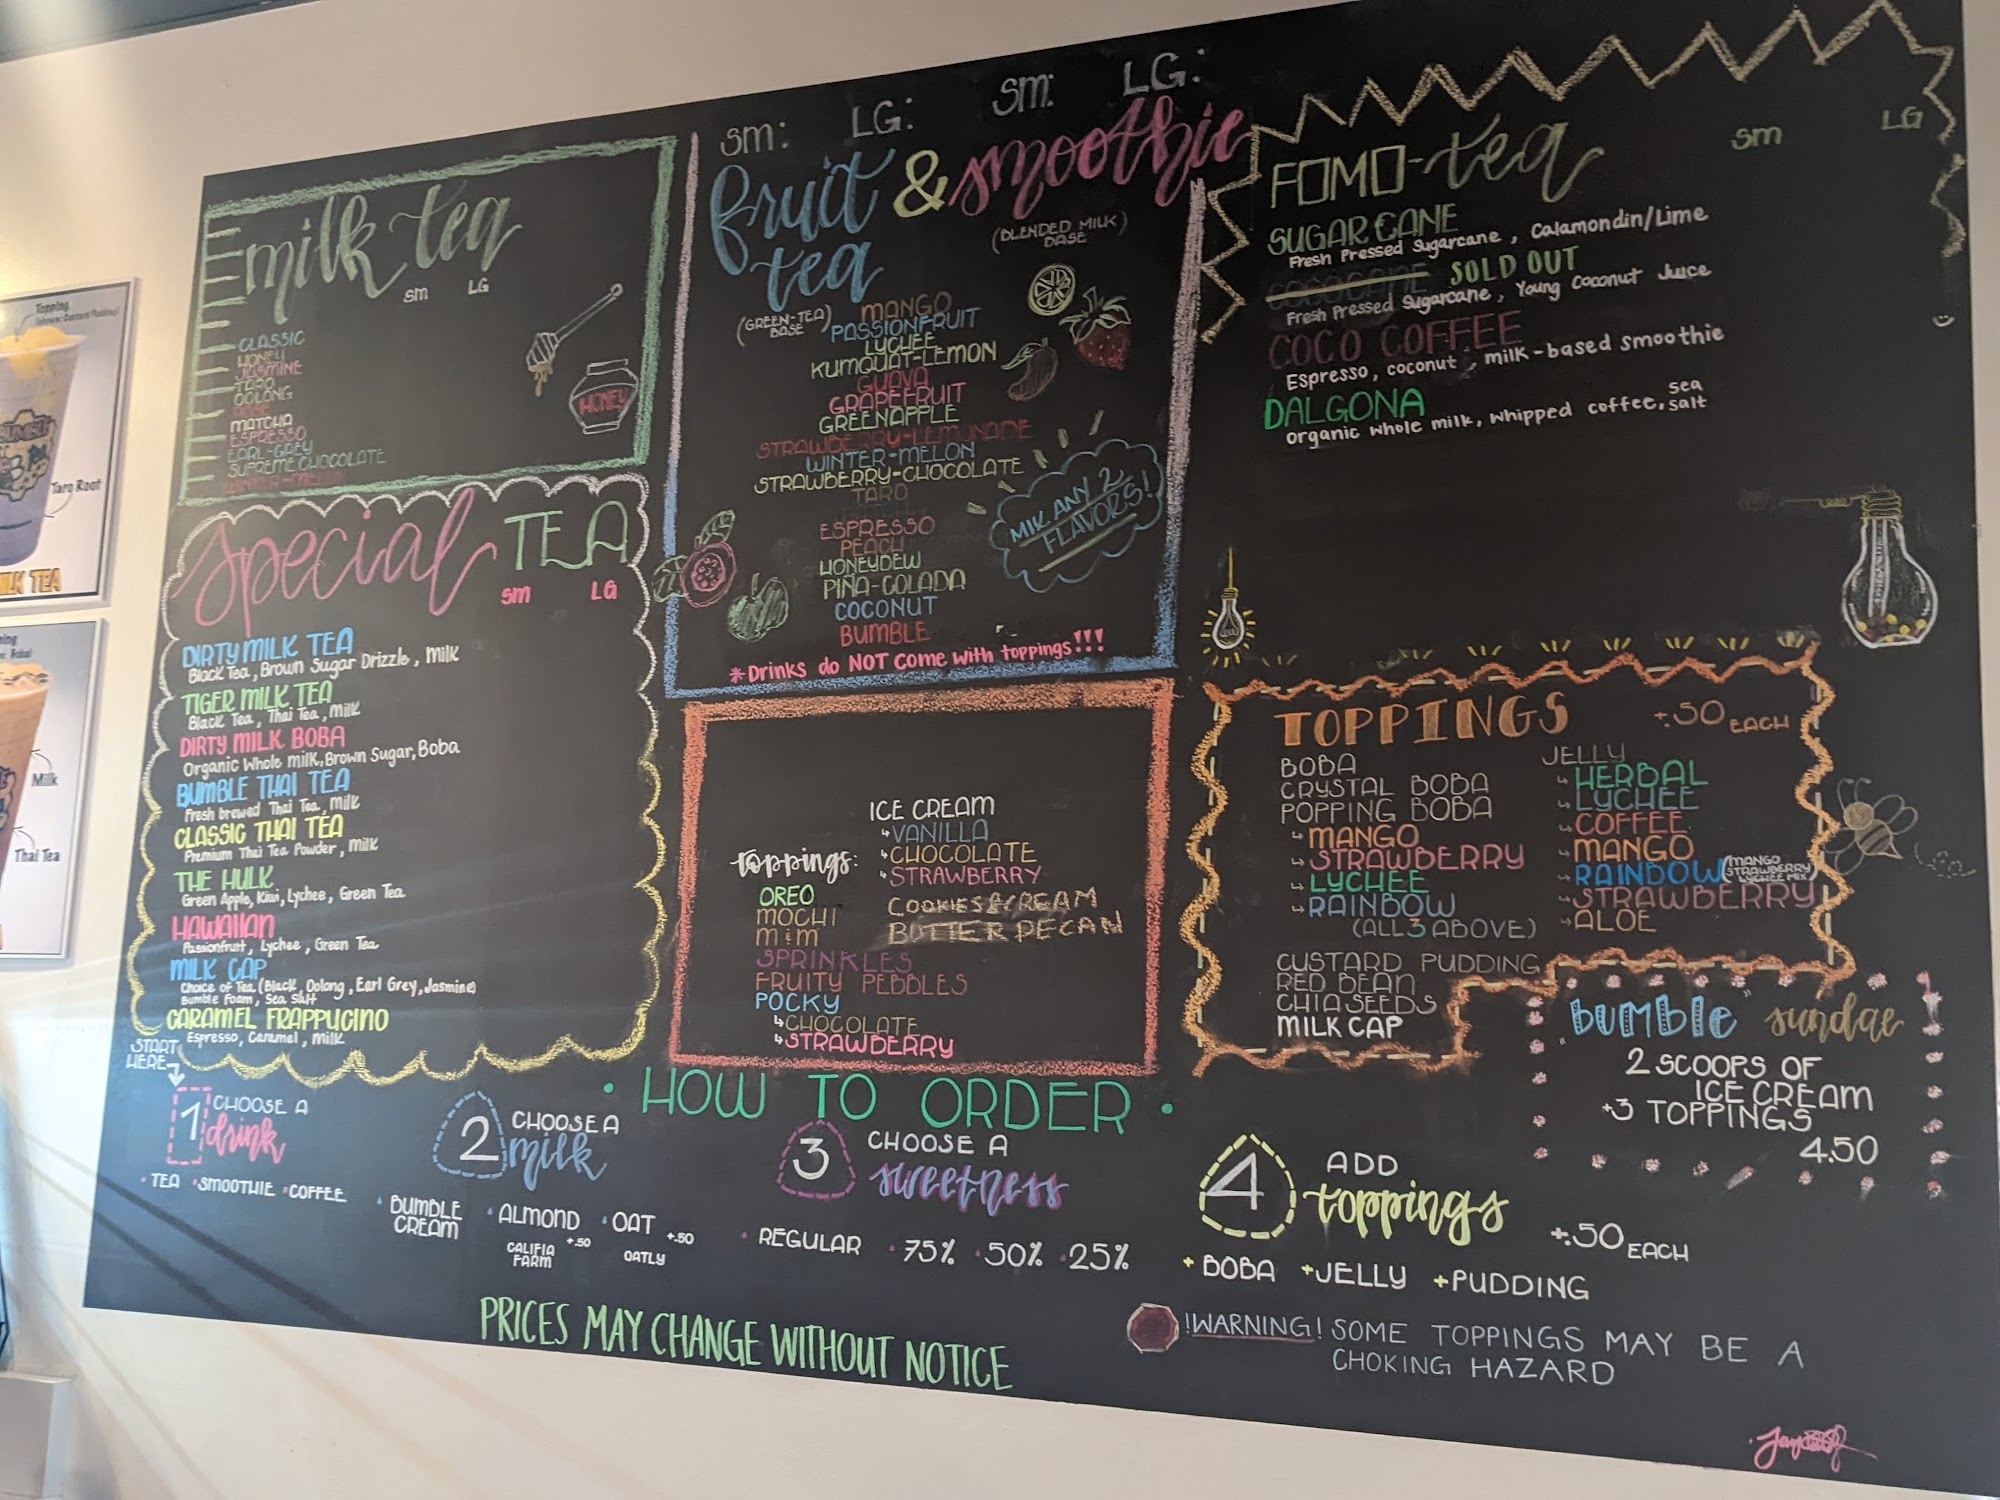 milk tea
SM LG
CLASSIC
HONEY
JASMINE
TARO
OOLONG
ROSE
MATCHA
ESPRESSO
EARL-GREY
SUPREME CHOCOLATE
WINTER-MELON
HONEY
special TEA
SM LG
DIRTY MILK TEA
Black Tea, Brown Sugar Drizzle, Milk
TIGER MILK TEA
Black Tea, Thai Tea, Milk
DIRTY MILK BOBA
Organic Whole milk, Brown Sugar, Boba
BUMBLE THAI TEA
Fresh brewed Thai Tea, Milk
CLASSIC THAI TEA
Premium Thai Tea Powder, Milk
THE HULK
Green Apple, Kiwi, Lychee, Green Tea
HAWAIIAN
Passionfruit, Lychee, Green Tea
MILK CAP
Choice of Tea (Black, Oolong, Earl Grey, Jasmine)
Bumble Foam, Sea Salt
CARAMEL FRAPPUCINO
Espresso, Caramel, Milk
SM: LG: SM: LG:
fruit & smoothie
tea
(BLENDED MILK)
BASE
(GREEN-TEA)
BASE
MANGO
PASSIONFRUIT
LYCHEE
KUMQUAT-LEMON
GUAVA
GRAPEFRUIT
GREENAPPLE
STRAWBERRY-LEMONADE
WINTER-MELON
STRAWBERRY-CHOCOLATE
TARO
ESPRESSO
PEACH
HONEYDEW
PIÑA-COLADA
COCONUT
BUMBLE
MIX ANY 2
FLAVORS!
*Drinks do NOT come with toppings!!!
ICE CREAM
VANILLA
CHOCOLATE
STRAWBERRY
COOKIES&CREAM
BUTTER PECAN
toppings:
OREO
MOCHI
M&M
SPRINKLES
FRUITY PEBBLES
POCKY
CHOCOLATE
STRAWBERRY
FOMO-tea
SM LG
SUGAR CANE
Fresh Pressed Sugarcane, Calamondin/Lime
COCOCANE SOLD OUT
Fresh Pressed Sugarcane, Young Coconut Juice
COCO COFFEE
Espresso, coconut, milk-based smoothie
DALGONA
Organic whole milk, whipped coffee, sea salt
TOPPINGS +.50 EACH
BOBA
CRYSTAL BOBA
POPPING BOBA
MANGO
STRAWBERRY
LYCHEE
RAINBOW
(ALL 3 ABOVE)
CUSTARD PUDDING
RED BEAN
CHIA SEEDS
MILK CAP
JELLY
HERBAL
LYCHEE
COFFEE
MANGO
RAINBOW (MANGO STRAWBERRY LYCHEE MIX)
STRAWBERRY
ALOE
"BUMBLE" sundae
2 SCOOPS OF
ICE CREAM
+3 TOPPINGS
4.50
HOW TO ORDER
START
HERE
1 CHOOSE A
drink
TEA SMOOTHIE COFFEE
2 CHOOSE A
milk
BUMBLE
CREAM
ALMOND +.50
CALIFIA
FARM
OAT +.50
OATLY
3 CHOOSE A
sweetness
REGULAR 75% 50% 25%
4 ADD
toppings +.50 EACH
+BOBA +JELLY +PUDDING
PRICES MAY CHANGE WITHOUT NOTICE
!WARNING! SOME TOPPINGS MAY BE A
CHOKING HAZARD
Topping
Taro Root
MILK TEA
Milk
Thai Tea